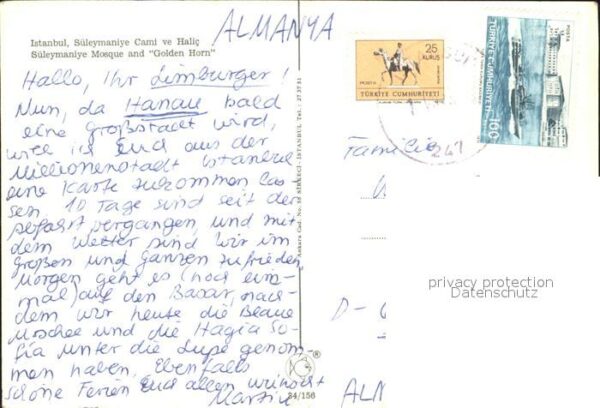 ALMANYA
Istanbul, Süleymaniye Cami ve Haliç
Süleymaniye Mosque and "Golden Horn"
Hallo, Ihr Limburger!
Nun, da Hanau bald
eine Großstadt wird,
will ich Euch aus der
Millionenstadt Istanbul
eine Karte zukommen las-
sen. 10 Tage sind seit der
Abfahrt vergangen, und mit
dem Wetter sind wir im
Großen und Ganzen zufrieden.
Morgen geht es (noch ein-
mal) auf den Basar, nach-
dem wir heute die Blaue
Moschee und die Hagia So-
fia unter die Lupe genom-
men haben. Ebenfalls
schöne Ferien Euch allen wünscht
Martin
Ankara Cad. No. SİRKECİ - İSTANBUL Tel.: 27 37 51
34/156
®
25
KURUŞ
POSTA
TÜRKİYE CUMHURİYETİ
POSTA
TÜRKİYE CUMHURİYETİ
160
247
Familie
D-6
ALM
privacy protection
Datenschutz